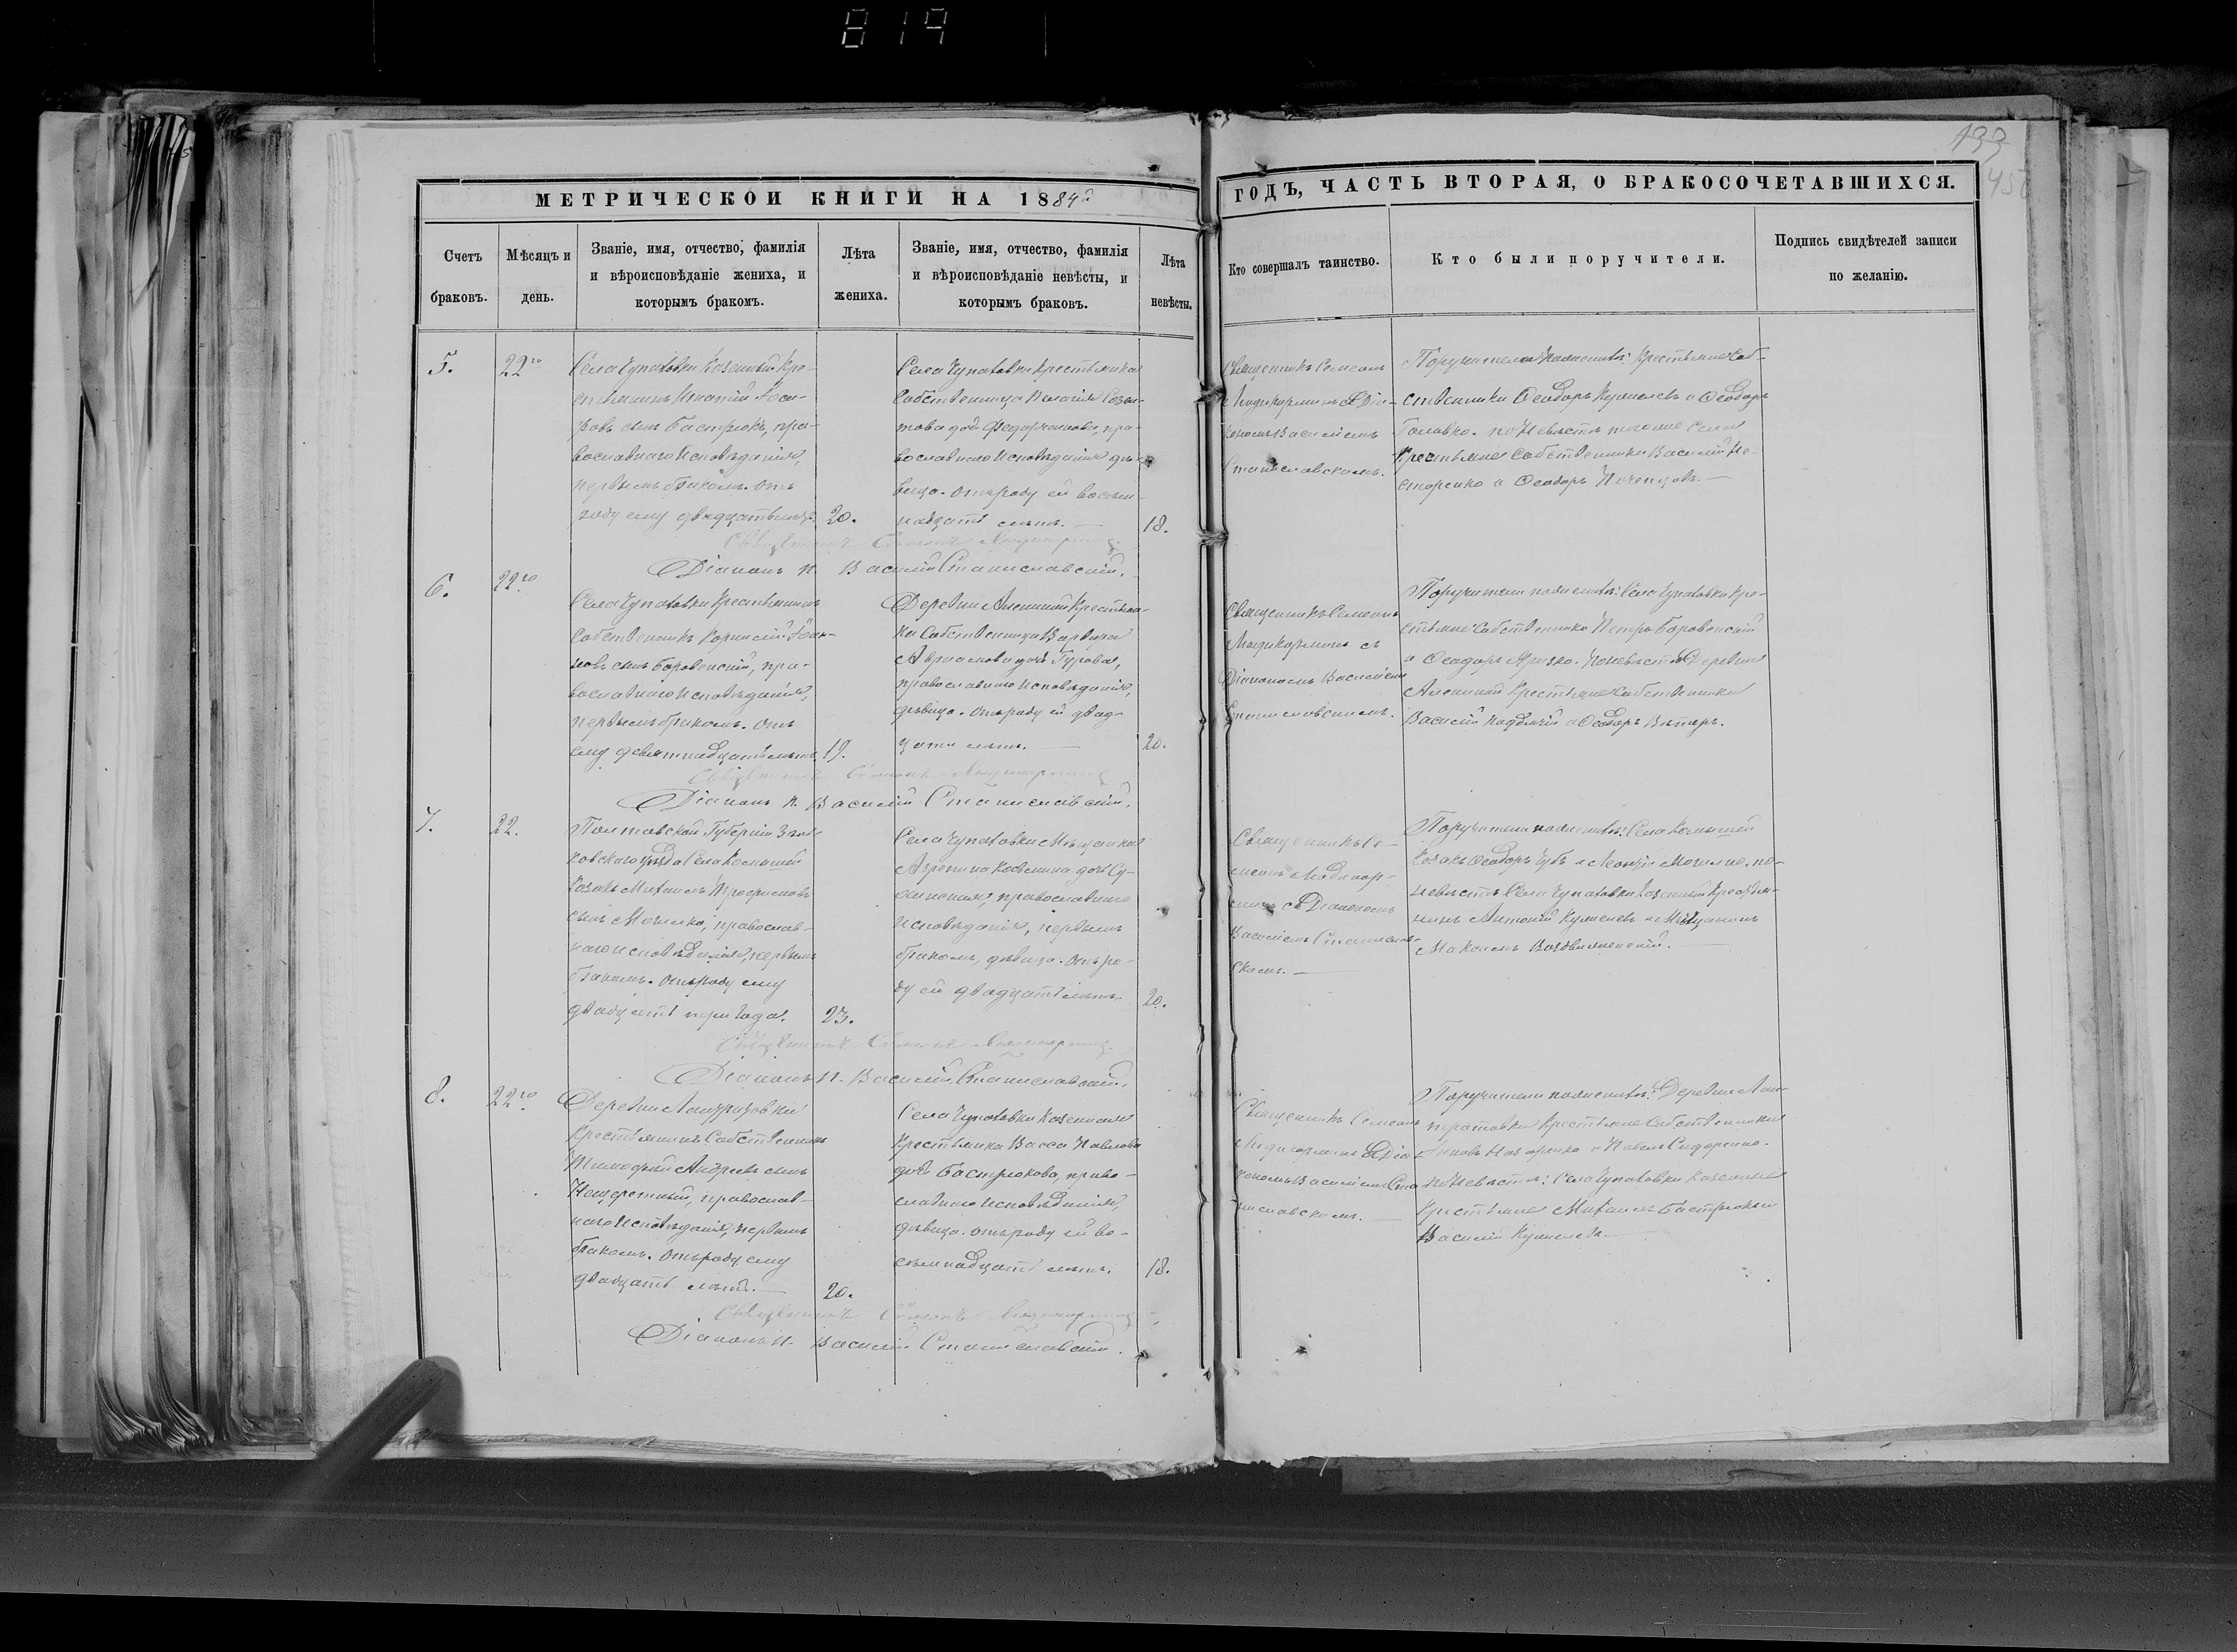 819
133
МЕТРИЧЕСКОЙ КНИГИ НА 1884й
ГОДЪ, ЧАСТЬ ВТОРАЯ, О БРАКОСОЧЕТАВШИХСЯ.
Счетъ браковъ.
Мѣсяцъ и день.
Званіе, имя, отчество, фамилія
и вѣроисповѣданіе жениха, и
которымъ бракомъ.
Лѣта
жениха.
Званіе, имя, отчество, фамилія
и вѣроисповѣданіе невѣсты, и
которымъ браковъ.
Лѣта
невѣсты.
Кто совершалъ таинство.
Кто были поручители.
Подпись свидѣтелей записи
по желанію.
5.
22го
Села Чупаховки Казенный Кре-
стьянинъ Игнатій
сынъ Бастрюкъ, пра-
вославнаго Исповѣданія,
первымъ бракомъ. Отъ
роду ему двадцать лѣтъ.
20.
Села Чупаховки Крестьянка
Собственница Пелагія Созон-
това дочь пра-
вославнаго Исповѣданія дѣ-
вица. Отъ роду ей восем-
надцать лѣтъ.
18.
Священникъ Симеонъ
Діа-
кономъ Василіемъ
Станиславскимъ.
Поручители по женихѣ: Крестьяне Соб-
ственники Ѳеодоръ Кужелевъ и Ѳеодоръ
Головко. по Невѣстѣ того же Села
Крестьяне Собственники Василій Не-
стеренко и Ѳеодоръ Поченцовъ.
Діаконъ Н. Василій Станиславскій.
6.
22го
Села Чупаховки Крестьянинъ
Собственникъ Корнилій Іоан-
новъ сынъ Боровенскій, пра-
вославнаго Исповѣданія,
первымъ бракомъ. Отъ
ему девятнадцать лѣтъ
19.
Деревни Крестьян-
ка Собственница Варвара
Авраамова дочь Гурова,
православнаго Исповѣданія,
дѣвица. Отъ роду ей двад-
цать лѣтъ.
20.
Священникъ Симеонъ
съ
Діакономъ Василіемъ
Станиславскимъ.
Поручители по женихѣ: Села Чупаховки Кре-
стьяне Собственники Петръ Боровенскій
и Ѳеодоръ По невѣстѣ Деревни
Крестьяне Собственники
Василій и Ѳеодоръ
Діаконъ Н. Василій Станиславскій.
7.
22.
Полтавской Губерніи Зень-
ковскаго уѣзда Села Комышей
Козакъ Михаилъ Трофимовъ
сынъ Могилко, православ-
наго исповѣданія, первымъ
бракомъ. Отъ роду ему
двадцать три года.
23.
Села Чупаховки Мѣщанка
Агрепина Косьмина дочь
православнаго
исповѣданія, первымъ
бракомъ, дѣвица. Отъ ро-
ду ей двадцать лѣтъ
20.
Священникъ Си-
меонъ
съ Діакономъ
Василіемъ Станислав-
скимъ.
Поручители по женихѣ: Села Комышей
Козакъ Ѳеодоръ Чубъ и Леонтій Могилко, по
невѣстѣ Села Чупаховки Казенный Крестья-
нинъ Антоній Кужелевъ и Мѣщанинъ
Максимъ Воздвиженскій.
Діаконъ Н. Василій Станиславскій.
8.
22го
Деревни
Крестьянинъ Собственникъ
Тимофей Андреевъ сынъ
Нещеретный, православ-
наго Исповѣданія, первымъ
бракомъ. Отъ роду ему
двадцать лѣтъ.
20.
Села Чупаховки Казенная
Крестьянка Васса Павлова
дочь Бастрюкова, право-
славнаго исповѣданія,
дѣвица. отъ роду ей во-
семнадцать лѣтъ.
18.
Священникъ Симеонъ
Діа-
кономъ Василіемъ Ста-
ниславскимъ.
Поручители по женихѣ: Деревни
Крестьяне Собственники
Іаковъ Назаренко и Павелъ Сидоренко.
по Невѣстѣ: Села Чупаховки Казенные
Крестьяне Михаилъ Бастрюкъ и
Василій Кужелевъ.
Діаконъ Н. Василій Станиславскій.